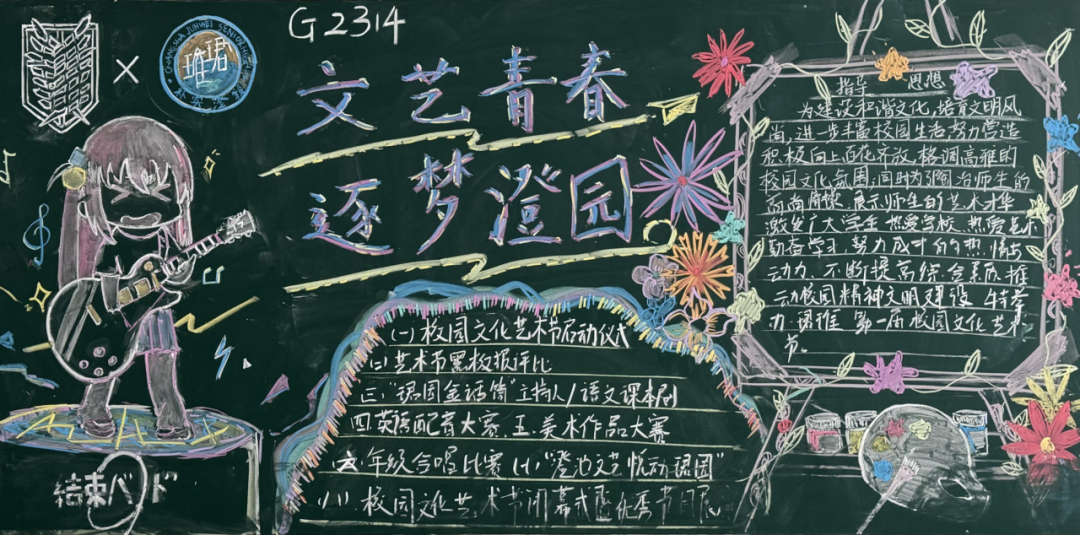 G2314
文艺青春
逐梦澄园
指导 思想
为建设和谐文化,培育文明风
尚,进一步丰富校园生活努力营造
积极向上百花齐放,格调高雅的
校园文化氛围,同时为陶冶师生的
高尚情操、展示师生的艺术才华
激发广大学生热爱学校、热爱艺术
勤奋学习、努力成才的热情与
动力,不断提高综合素质,推
动校园精神文明建设,特举
力 珺淮 第一届校园文化艺术
节。
(一)校园文化艺术节启动仪式
(二)艺术节黑板报评比
三."珺园金话筒"主持人/语文课本剧
四.英语配音大赛.五.美术作品大赛
六年级合唱比赛(七)"澄池文艺悦动珺园"
(八)校园文化艺术节闭幕式暨优秀节目展
結束バンド